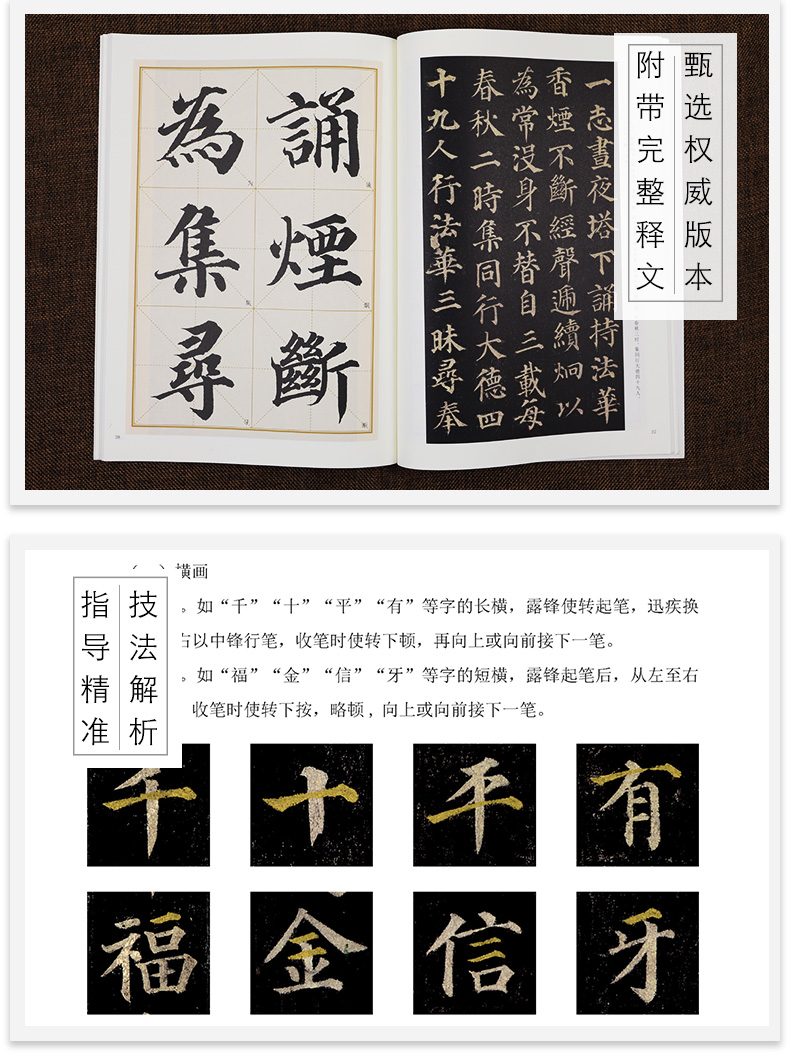 甄选权威版本
附带完整释文
一志晝夜塔下誦持法華
香煙不斷經聲遞續炯以
為常没身不替自三載每
春秋二時集同行大德四
十九人行法華三昧尋奉
誦煙斷
為集尋
技法解析
指导精准
横画
。如“千”“十”“平”“有”等字的长横，露锋使转起笔，迅疾换
右以中锋行笔，收笔时使转下顿，再向上或向前接下一笔。
。如“福”“金”“信”“牙”等字的短横，露锋起笔后，从左至右
收笔时使转下按，略顿，向上或向前接下一笔。
千 十 平 有
福 金 信 牙